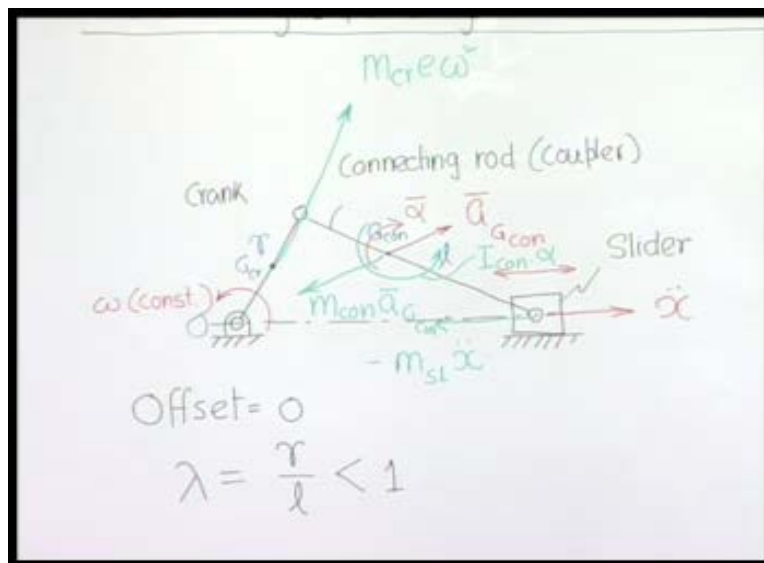 m_cr e ω²
Connecting rod (coupler)
Crank
ᾱ
G_con
ā_Gcon
r
G_cr
l
I_con α
Slider
ω (const.)
m_con ā_Gcon
O
ẍ
- m_SL ẍ
Offset = 0
λ = r/l < 1